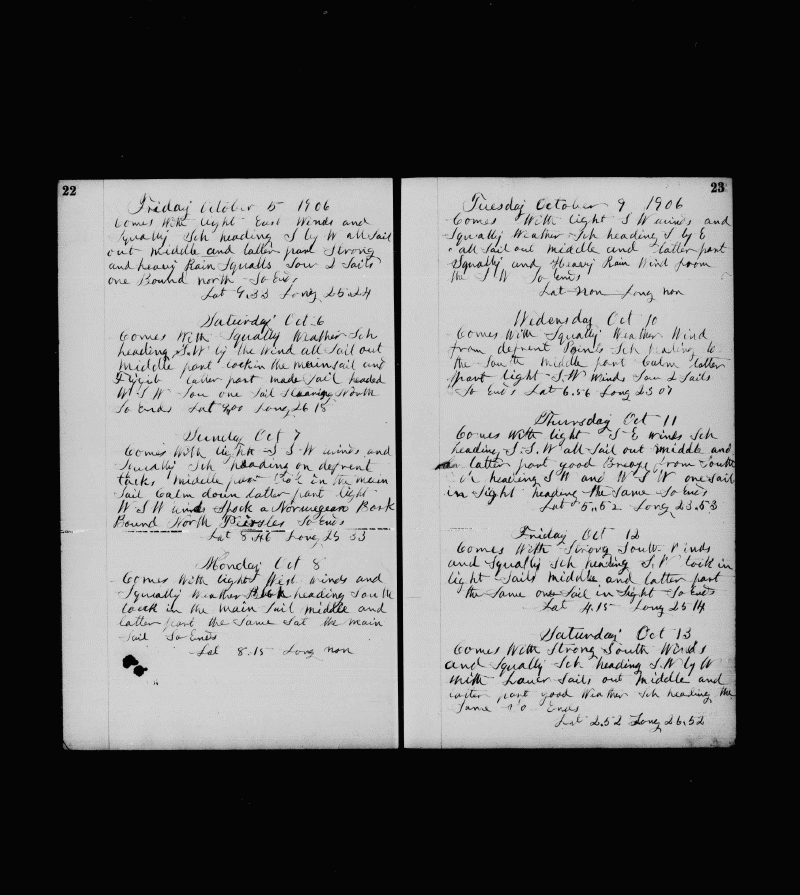 22
Friday October 5 1906
Comes With light East Winds and
Squally Sch heading S by W all Sail
out middle and latter part Strong
and heavy Rain Squalls Saw 2 Sails
one Bound north So Ends
Lat 9.33 Long 25.24
Saturday Oct 6
Comes With Squally Weather Sch
heading S.W by the Wind all Sail out
middle part tock in the mainsail and
latter part made Sail headed
W S W Saw one Sail Stearing North
So Ends Lat 8,00 Long 26 18
Sunday Oct 7
Comes With light S S W winds and
Squally Sch heading on defrent
tacks middle part tock in the main
Sail Calm down latter part light
W S W winds Spock a Norwegean Bark
Bound North So Ends
Lat 8.46 Long 25 33
Monday Oct 8
Comes With light West Winds and
Squally Weather Sch heading South
tock in the main Sail middle and
latter part the Same Sat the main
Sail So Ends
Lat 8.15 Long non
23
Tuesday October 9 1906
Comes With light S W winds and
Squally Weather Sch heading S by E
all Sail out middle and latter part
Squally and Heavy Rain Wind from
the S W So Ends
Lat non Long non
Widensday Oct 10
Comes With Squally Weather Wind
from defrent Points Sch heading to
the South middle part Calm latter
part light S.W Winds Saw 2 Sails
So Ends Lat 6.56 Long 23 07
Thursday Oct 11
Comes With light S E winds Sch
heading S.S.W all Sail out middle and
latter part good Breeze from South
heading S W and W S W one Sail
in Sight heading the Same So Ends
Lat 5.52 Long 23.53
Friday Oct 12
Comes With Strong South Winds
and Squally Sch heading S.W tock in
light Sails middle and latter part
the Same one Sail in Sight So Ends
Lat 4.15 Long 25 14
Saturday Oct 13
Comes With Strong South Winds
and Squally Sch heading S.W by W
With Lauer Sails out middle and
latter part good Weather Sch heading the
Same So Ends
Lat 2.52 Long 26.52